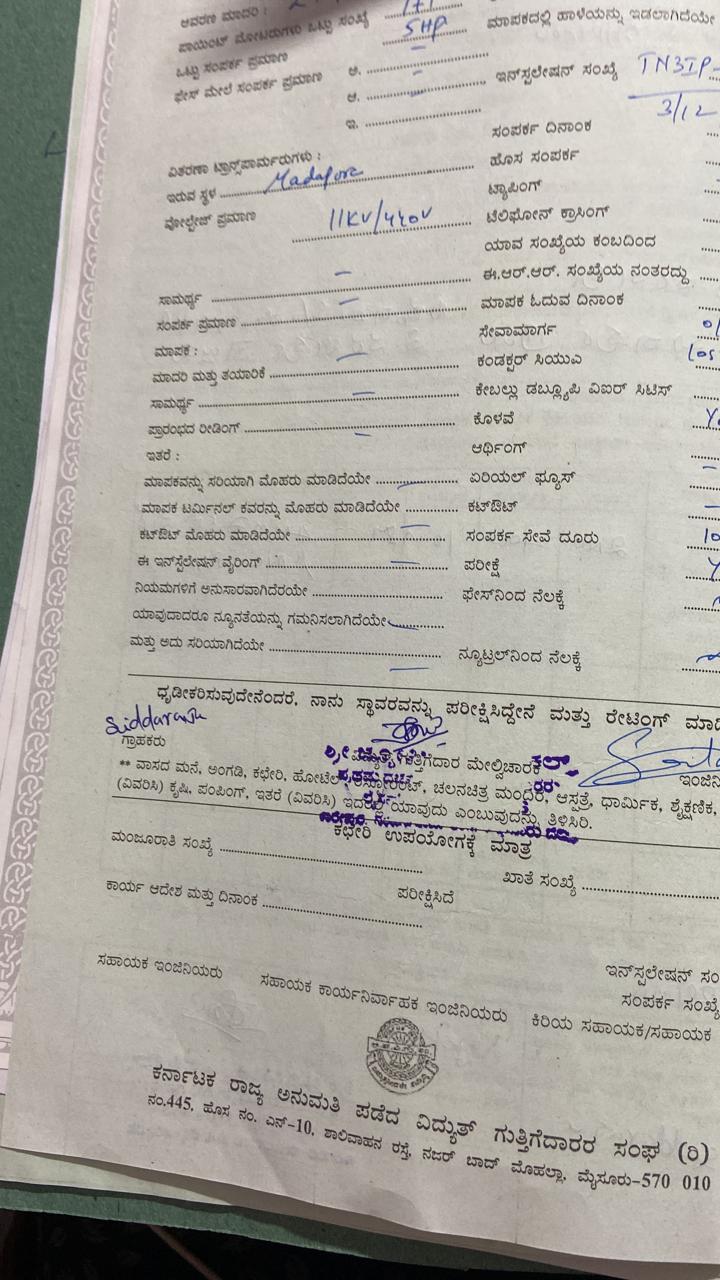 ಆವರಣ ಮಾದರಿ :
ಪಾಯಿಂಟ್ ಮೋಟರುಗಳು ಒಟ್ಟು ಸಂಖ್ಯೆ 1+1
ಒಟ್ಟು ಸಂಪರ್ಕ ಪ್ರಮಾಣ 5HP
ಫೇಸ್ ಮೇಲೆ ಸಂಪರ್ಕ ಪ್ರಮಾಣ ಅ. –
ಆ. –
ಇ.
ವಿತರಣಾ ಟ್ರಾನ್ಸ್‌ಪಾರ್ಮರುಗಳು :
ಇರುವ ಸ್ಥಳ Madapore
ವೋಲ್ಟೇಜ್ ಪ್ರಮಾಣ 11KV/440V
ಸಾಮರ್ಥ್ಯ –
ಸಂಪರ್ಕ ಪ್ರಮಾಣ –
ಮಾಪಕ :
ಮಾದರಿ ಮತ್ತು ತಯಾರಿಕೆ –
ಸಾಮರ್ಥ್ಯ –
ಪ್ರಾರಂಭದ ರೀಡಿಂಗ್ –
ಇತರೆ :
ಮಾಪಕವನ್ನು ಸರಿಯಾಗಿ ಮೊಹರು ಮಾಡಿದೆಯೇ –
ಮಾಪಕ ಟರ್ಮಿನಲ್ ಕವರನ್ನು ಮೊಹರು ಮಾಡಿದೆಯೇ
ಕಟ್‌ಔಟ್ ಮೊಹರು ಮಾಡಿದೆಯೇ –
ಈ ಇನ್‌ಸ್ಟಲೇಷನ್ ವೈರಿಂಗ್ –
ನಿಯಮಗಳಿಗೆ ಅನುಸಾರವಾಗಿದೆರಯೇ
ಯಾವುದಾದರೂ ನ್ಯೂನತೆಯನ್ನು ಗಮನಿಸಲಾಗಿದೆಯೇ –
ಮತ್ತು ಅದು ಸರಿಯಾಗಿದೆಯೇ –
ಮಾಪಕದಲ್ಲಿ ಹಾಳೆಯನ್ನು ಇಡಲಾಗಿದೆಯೇ
ಇನ್‌ಸ್ಟಲೇಷನ್ ಸಂಖ್ಯೆ TN3IP-
3/12
ಸಂಪರ್ಕ ದಿನಾಂಕ
ಹೊಸ ಸಂಪರ್ಕ
ಟ್ಯಾಪಿಂಗ್
ಟೆಲಿಫೋನ್ ಕ್ರಾಸಿಂಗ್
ಯಾವ ಸಂಖ್ಯೆಯ ಕಂಬದಿಂದ
ಈ.ಆರ್.ಆರ್. ಸಂಖ್ಯೆಯ ನಂತರದ್ದು
ಮಾಪಕ ಓದುವ ದಿನಾಂಕ
ಸೇವಾಮಾರ್ಗ
ಕಂಡಕ್ಟರ್ ಸಿಯುಎ
ಕೇಬಲ್ಲು ಡಬ್ಲ್ಯೂಪಿ ವಿಐರ್ ಸಿಟಿಸ್
ಕೊಳವೆ
ಆರ್ಥಿಂಗ್
ಏರಿಯಲ್ ಫ್ಯೂಸ್
ಕಟ್‌ಔಟ್
ಸಂಪರ್ಕ ಸೇವೆ ದೂರು
ಪರೀಕ್ಷೆ
ಫೇಸ್‌ನಿಂದ ನೆಲಕ್ಕೆ
ನ್ಯೂಟ್ರಲ್‌ನಿಂದ ನೆಲಕ್ಕೆ
ಧೃಡೀಕರಿಸುವುದೇನೆಂದರೆ, ನಾನು ಸ್ಥಾವರವನ್ನು ಪರೀಕ್ಷಿಸಿದ್ದೇನೆ ಮತ್ತು ರೇಟಿಂಗ್
Siddaraju
ಗ್ರಾಹಕರು ಗುತ್ತಿಗೆದಾರ ಮೇಲ್ವಿಚಾರಕ
** ವಾಸದ ಮನೆ, ಅಂಗಡಿ, ಕಛೇರಿ, ಹೋಟೆಲ್, ಚಲನಚಿತ್ರ ಮಂದಿರ, ಆಸ್ಪತ್ರೆ, ಧಾರ್ಮಿಕ, ಶೈಕ್ಷಣಿಕ,
(ವಿವರಿಸಿ) ಕೃಷಿ, ಪಂಪಿಂಗ್, ಇತರೆ (ವಿವರಿಸಿ) ಇದರಲ್ಲಿ ಯಾವುದು ಎಂಬುವುದನ್ನು ತಿಳಿಸಿರಿ.
ಕಛೇರಿ ಉಪಯೋಗಕ್ಕೆ ಮಾತ್ರ
ಮಂಜೂರಾತಿ ಸಂಖ್ಯೆ ಖಾತೆ ಸಂಖ್ಯೆ
ಕಾರ್ಯ ಆದೇಶ ಮತ್ತು ದಿನಾಂಕ ಪರೀಕ್ಷಿಸಿದೆ
ಇನ್‌ಸ್ಟಲೇಷನ್
ಸಂಪರ್ಕ ಸಂಖ್ಯೆ
ಸಹಾಯಕ ಇಂಜಿನಿಯರು ಸಹಾಯಕ ಕಾರ್ಯನಿರ್ವಾಹಕ ಇಂಜಿನಿಯರು ಕಿರಿಯ ಸಹಾಯಕ/ಸಹಾಯಕ
ಕರ್ನಾಟಕ ರಾಜ್ಯ ಅನುಮತಿ ಪಡೆದ ವಿದ್ಯುತ್ ಗುತ್ತಿಗೆದಾರರ ಸಂಘ (ರಿ)
ನಂ.445, ಹೊಸ ನಂ. ಎನ್-10, ಶಾಲಿವಾಹನ ರಸ್ತೆ, ನಜರ್ ಬಾದ್ ಮೊಹಲ್ಲಾ, ಮೈಸೂರು-570 010